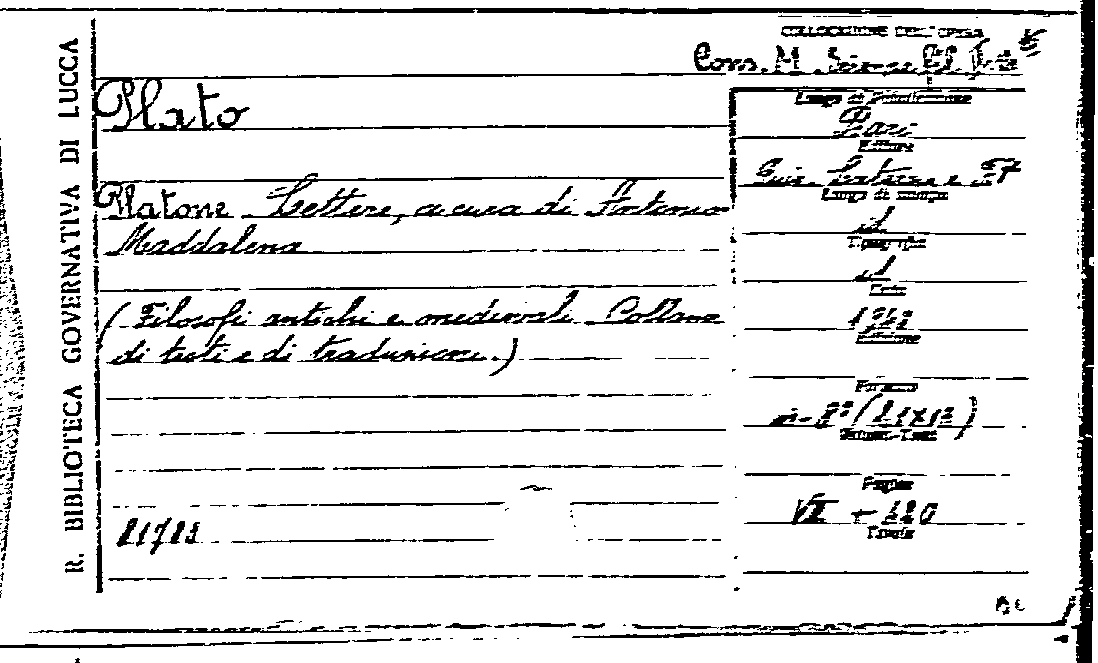 R. BIBLIOTECA GOVERNATIVA DI LUCCA
COLLOCAZIONE DELL'OPERA
Cons. M. Scienze
Plato
Luogo di Pubblicazione
Bari
Editore
Platone Lettere, a cura di Antonio
Gius. Laterza e
Luogo di stampa
Maddalena
id
Tipografia
id
Data
(Filosofi antichi e medievali Collana
di testi e di traduzioni.)
Edizione
Formato
in-8° (21x13)
Volumi-Tomi
Pagine
VII +
Tavole